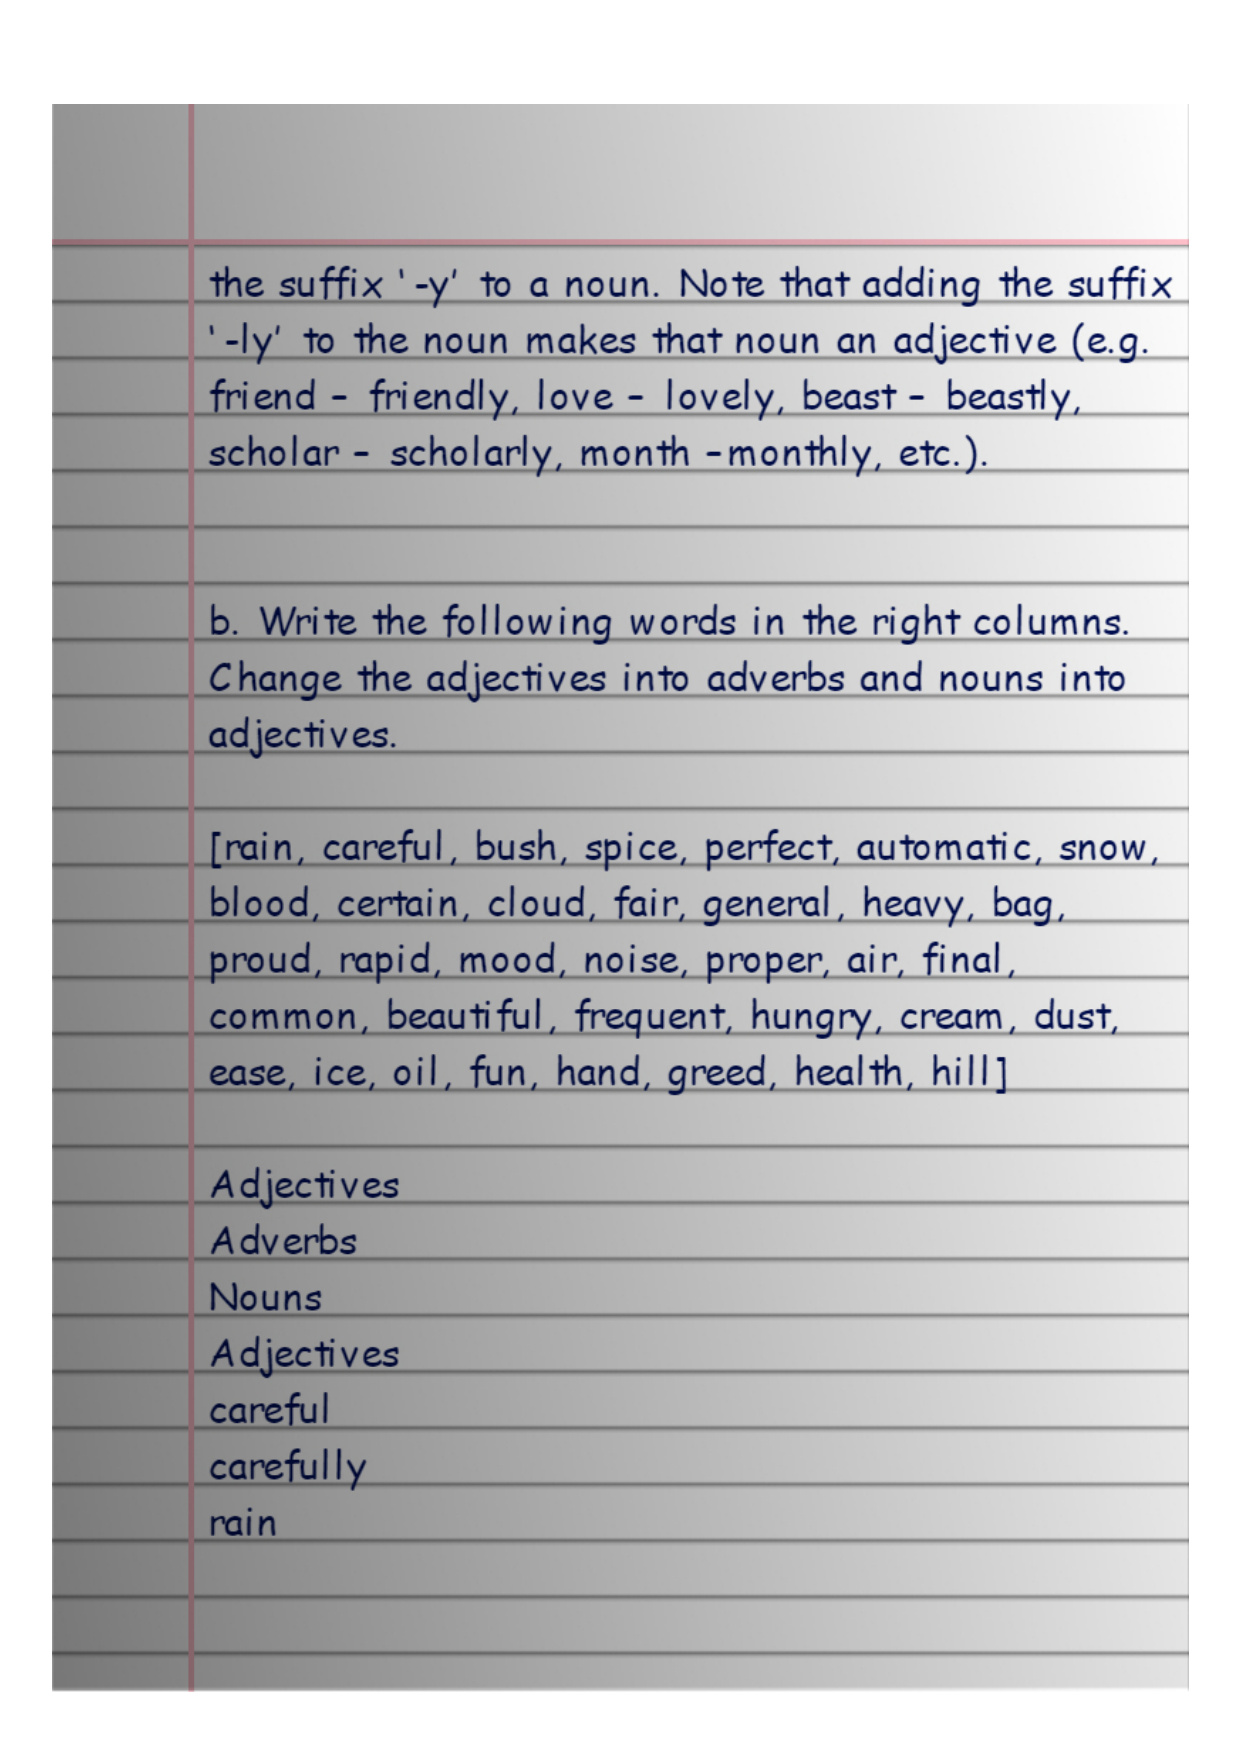 the suffix ‘-y’ to a noun. Note that adding the suffix
‘-ly’ to the noun makes that noun an adjective (e.g.
friend – friendly, love – lovely, beast – beastly,
scholar – scholarly, month –monthly, etc.).
b. Write the following words in the right columns.
Change the adjectives into adverbs and nouns into
adjectives.
[rain, careful, bush, spice, perfect, automatic, snow,
blood, certain, cloud, fair, general, heavy, bag,
proud, rapid, mood, noise, proper, air, final,
common, beautiful, frequent, hungry, cream, dust,
ease, ice, oil, fun, hand, greed, health, hill]
Adjectives
Adverbs
Nouns
Adjectives
careful
carefully
rain